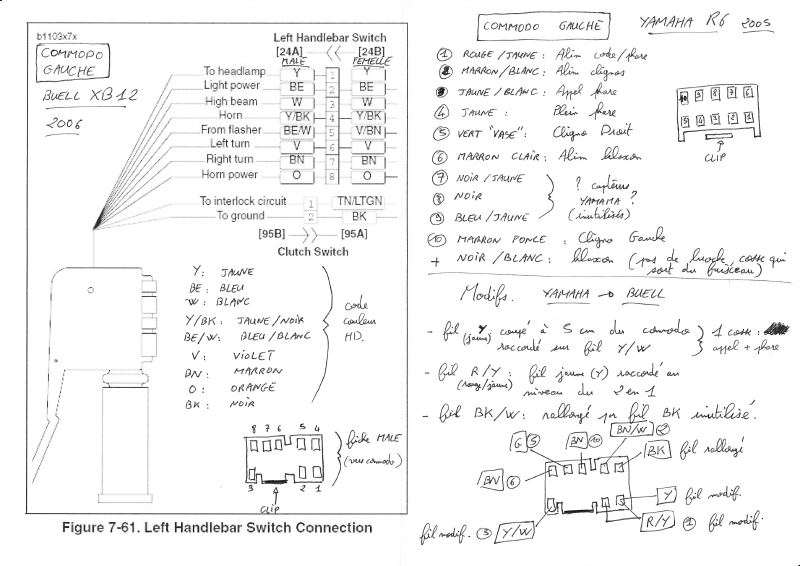 b1103x7x
COMMODO
GAUCHE
BUELL XB12
2006
Left Handlebar Switch
[24A] [24B]
MALE FEMELLE
To headlamp Y 1 Y
Light power BE 2 BE
High beam W 3 W
Horn Y/BK 4 Y/BK
From flasher BE/W 5 V/BN
Left turn V 6 V
Right turn BN 7 BN
Horn power O 8 O
To interlock circuit 1 TN/LTGN
To ground 2 BK
[95B] [95A]
Clutch Switch
Y: JAUNE
BE: BLEU
W: BLANC
Y/BK: JAUNE/NOIR
BE/W: BLEU/BLANC
V: VIOLET
BN: MARRON
O: ORANGE
BK: NOIR
code
couleur
HD.
8 7 6 5 4
3 2 1
CLIP
fiche MALE
(vue comodo)
Figure 7-61. Left Handlebar Switch Connection
COMMODO GAUCHE YAMAHA R6 2005
1 ROUGE/JAUNE: Alim code/phare
2 MARRON/BLANC: Alim clignos
3 JAUNE/BLANC: Appel phare
4 JAUNE: Plein phare
5 VERT "VASE": Cligno Droit
6 MARRON CLAIR: Alim klaxon
7 NOIR/JAUNE
8 NOIR
9 BLEU/JAUNE
? capteurs
YAMAHA ?
(inutilisés)
10 MARRON FONCE: Cligno Gauche
+ NOIR/BLANC: klaxon (pas de broche, cosse qui
sort du faisceau)
10 9 8 7 6
5 4 3 2 1
CLIP
Modifs. YAMAHA → BUELL
- fil Y (jaune) coupé à 5 cm du comodo
raccordé sur fil Y/W
1 cosse:
appel + phare
- fil R/Y: fil jaune (Y) raccordé au
(rouge/jaune) niveau du 2 en 1
- fil BK/W: rallongé par fil BK inutilisé.
G 5 BN 10 BN/W 2
BK fil rallongé
BN 6
Y fil modif.
fil modif. 3 Y/W R/Y 1 fil modif.